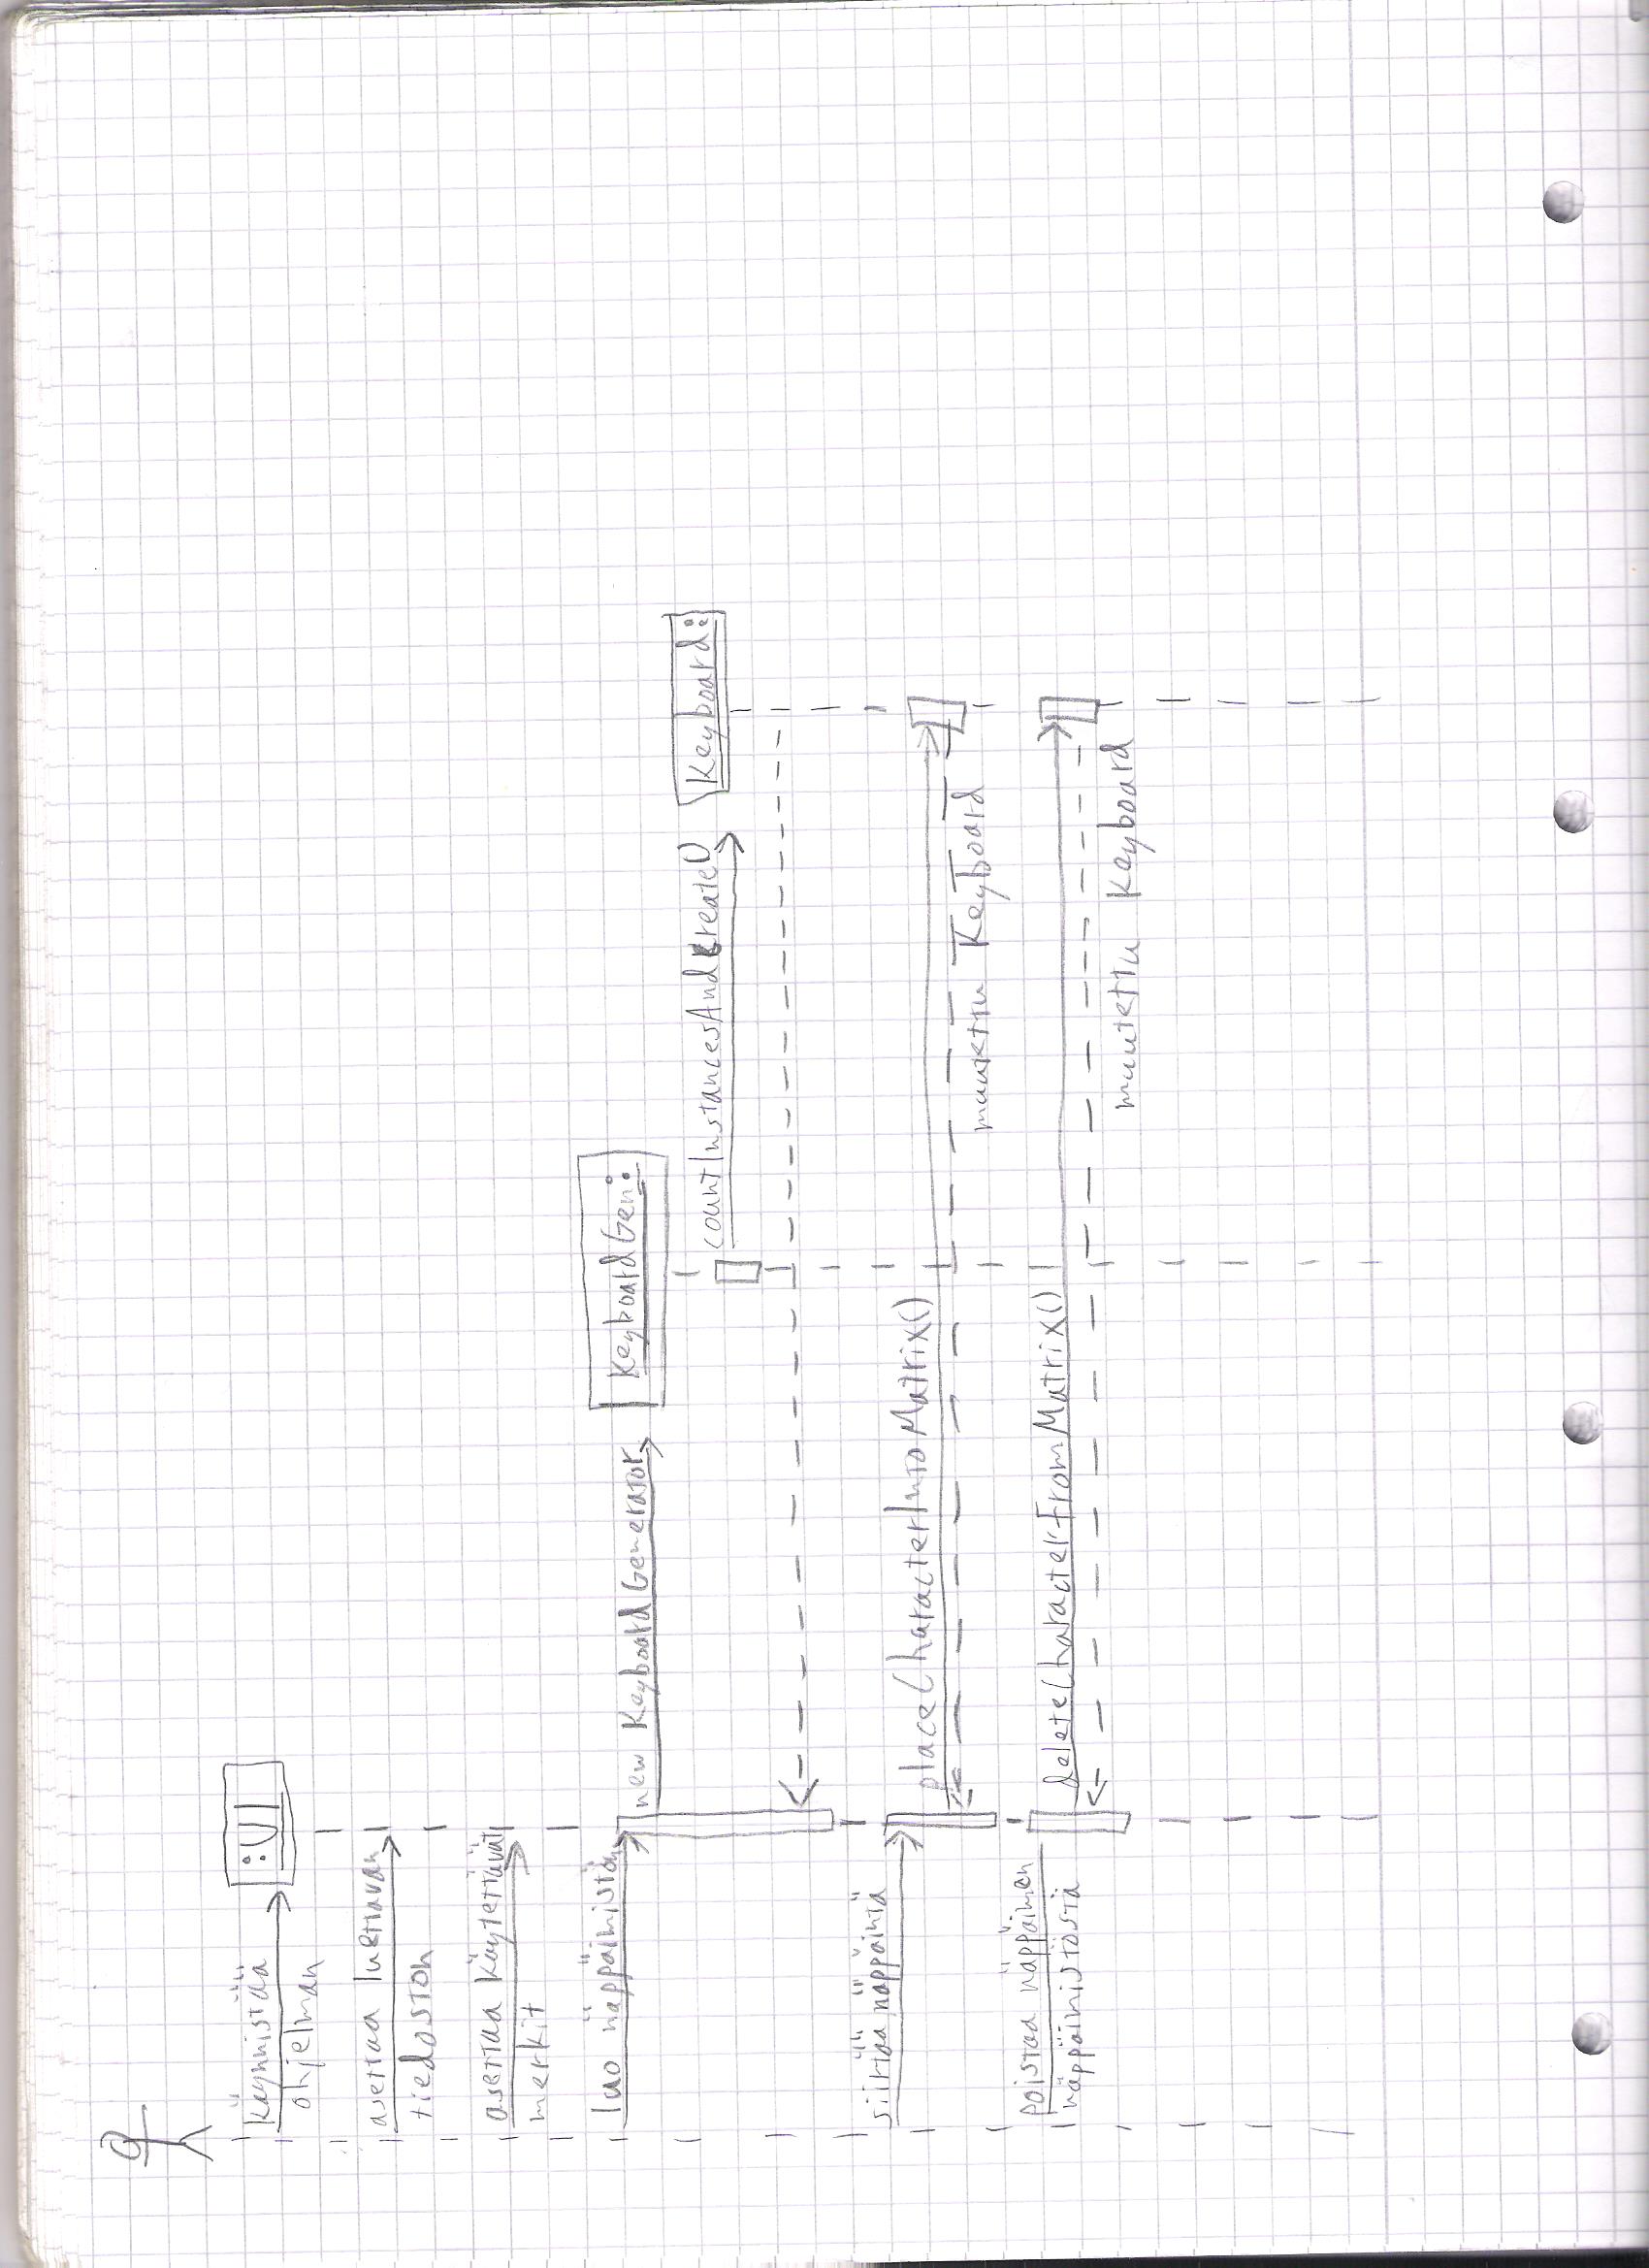 käynnistää
ohjelman
:UI
asettaa luettavan
tiedoston
asettaa käytettävät
merkit
luo näppäimistön
new KeyboardGenerator
KeyboardGen:
countInstancesAndCreate()
Keyboard:
siirtää näppäintä
placeCharacterIntoMatrix()
muutettu Keyboard
poistaa näppäimen
näppäimistöstä
deleteCharacterFromMatrix()
muutettu Keyboard